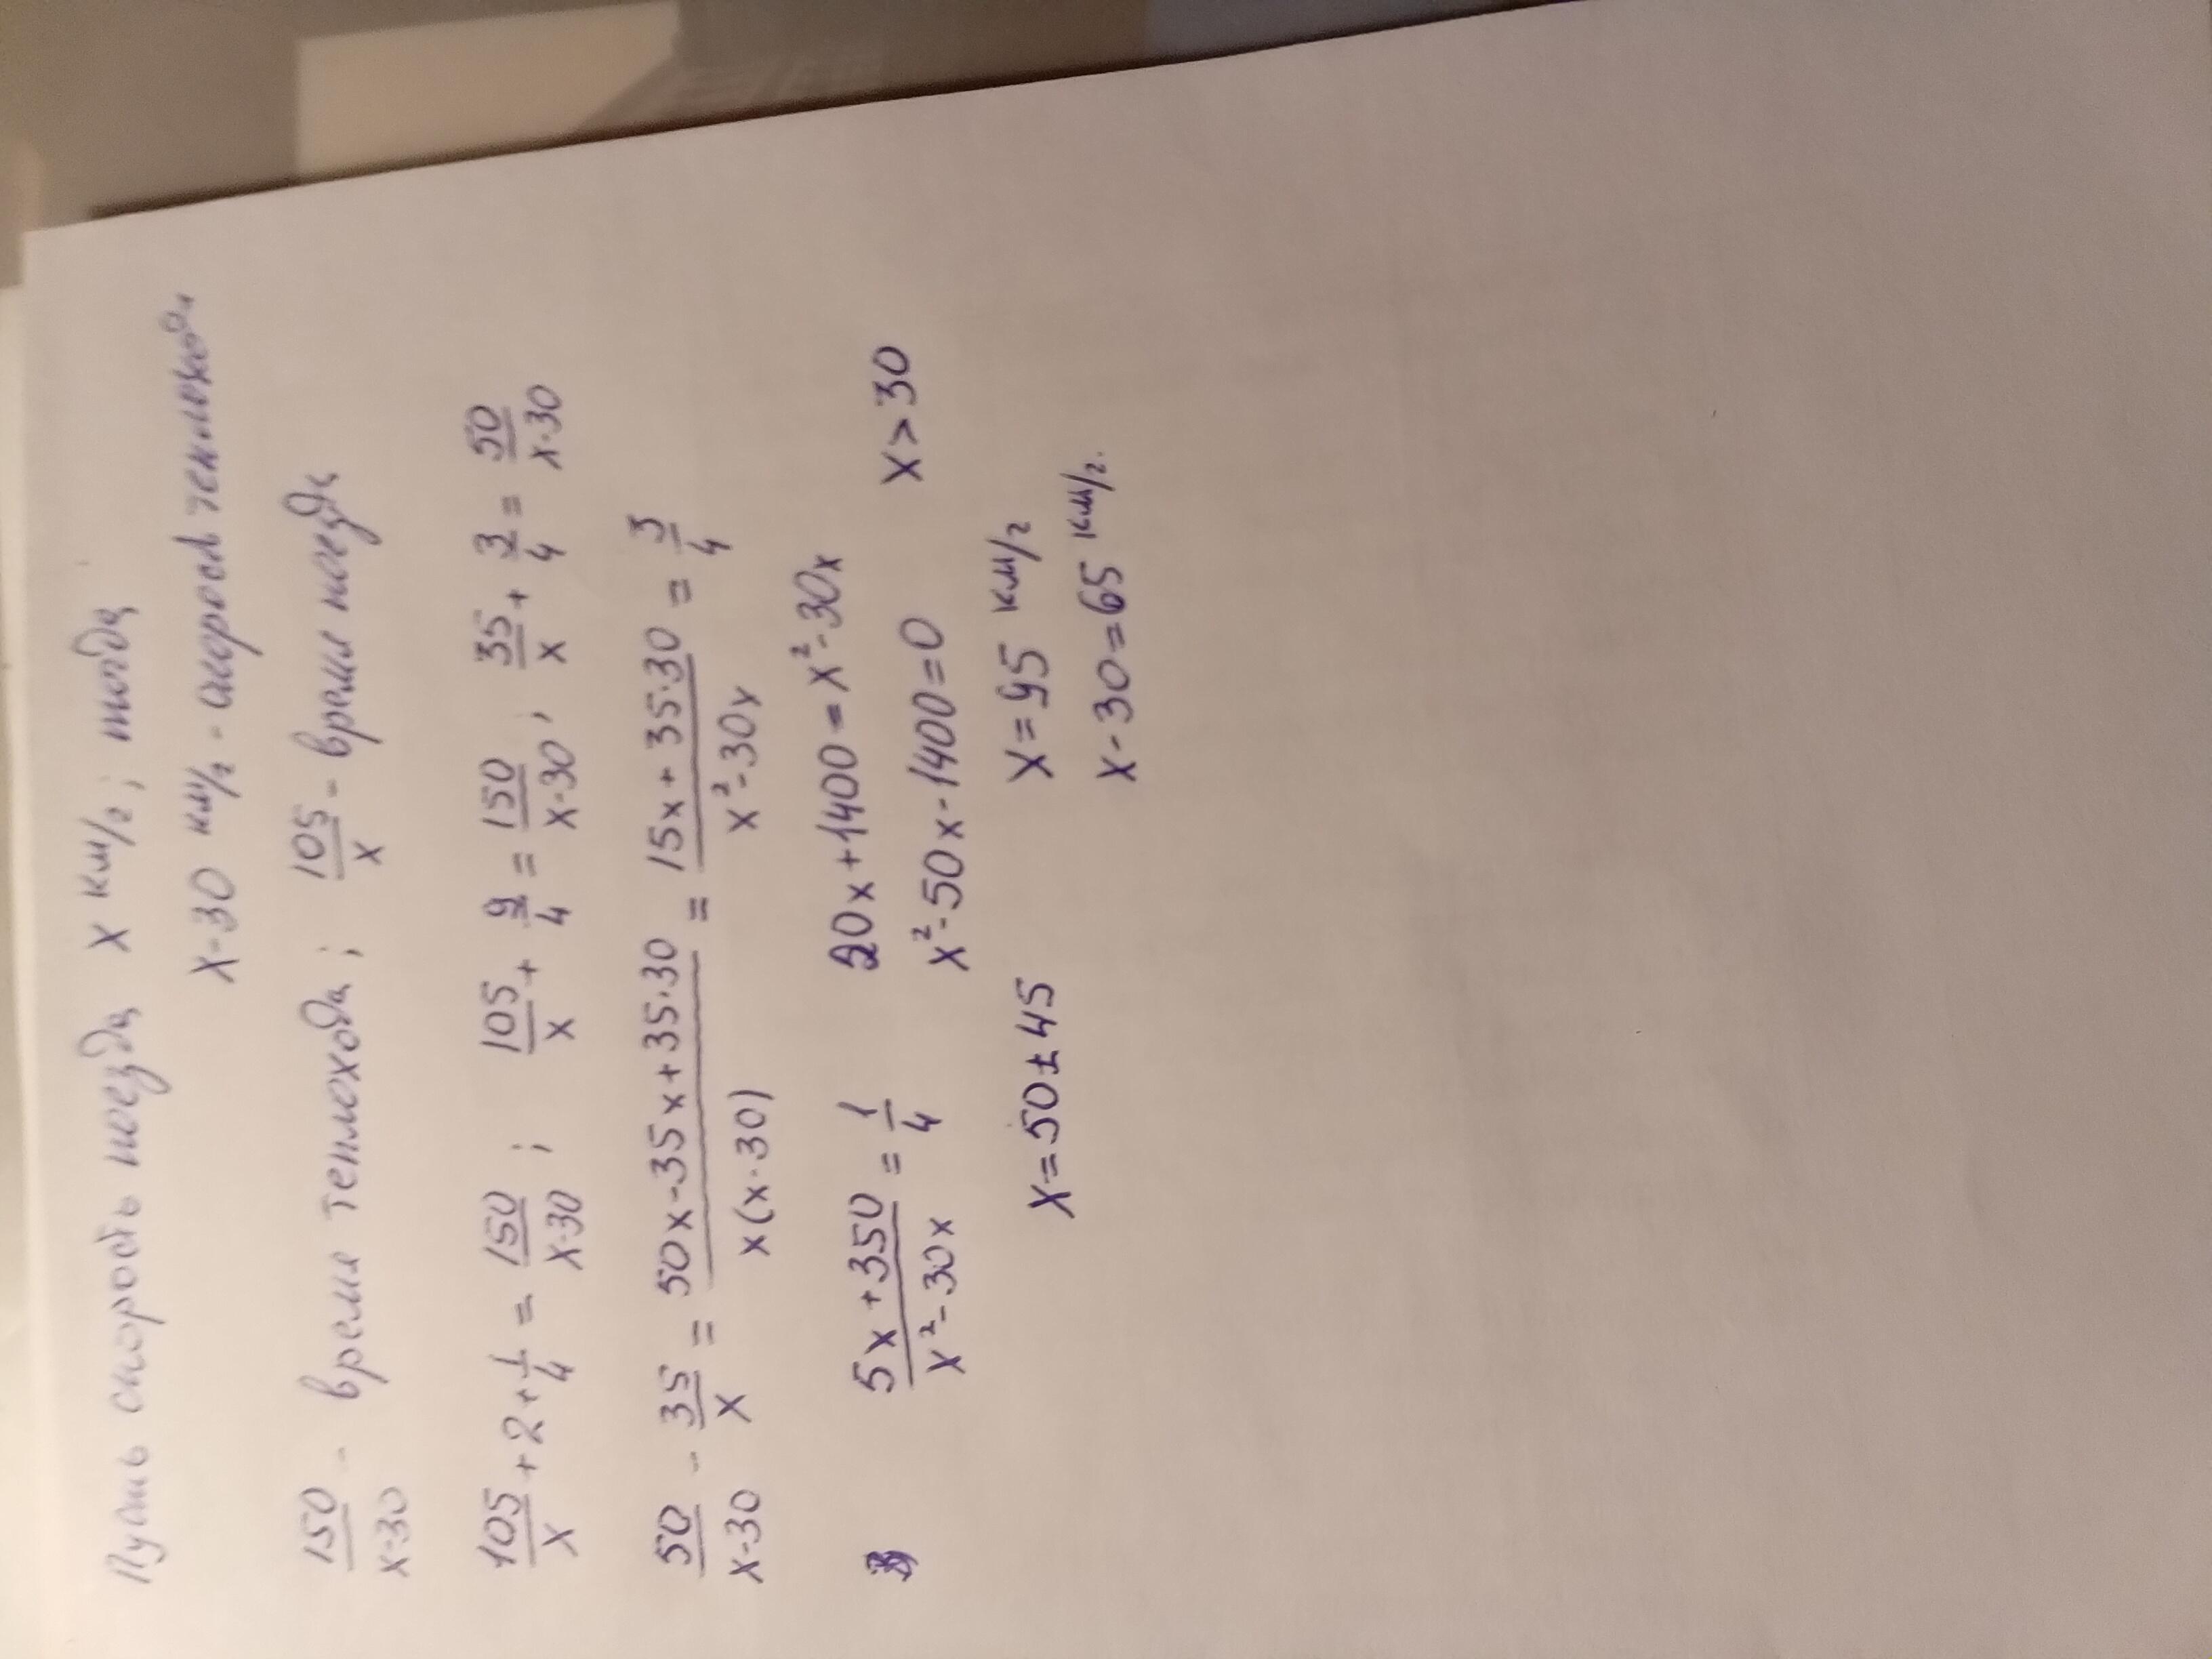 Пусть скорость поезда x км/ч; тогда
x-30 км/ч - скорость теплохода
150/(x-30) - время теплохода; 105/x - время поезда
105/x + 2 + 1/4 = 150/(x-30); 105/x + 9/4 = 150/(x-30); 35/x + 3/4 = 50/(x-30)
50/(x-30) - 35/x = (50x-35x+35·30)/(x(x-30)) = (15x+35·30)/(x²-30x) = 3/4
(5x+350)/(x²-30x) = 1/4 20x+1400=x²-30x
x²-50x-1400=0 x>30
x=50±45 x=95 км/ч
x-30=65 км/ч.